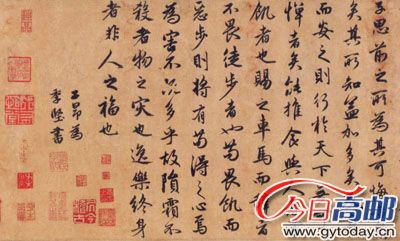 子思前之所為其可悔
矣其所知益加多矣
而安之則行於天下
悍者矣能推食與人
飢者也賜之車馬而者
不畏徒步者也苟畏飢而
惡步則將有苟得之心焉
為害不既多乎故隕霜不
殺者物之災也逸樂終身
者非人之福也
昂為
季堅書
今日高邮
www.gytoday.cn